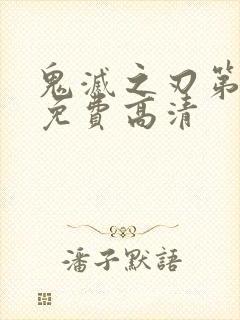 鬼滅之刃第
免費高清
潘子默語